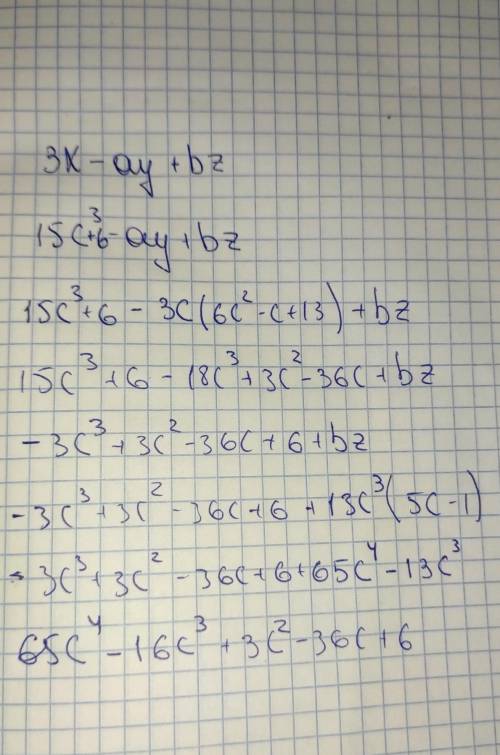 3x - ay + bz
15c³+6 - ay + bz
15c³ + 6 - 3c(6c² - c + 13) + bz
15c³ + 6 - 18c³ + 3c² - 36c + bz
- 3c³ + 3c² - 36c + 6 + bz
- 3c³ + 3c² - 36c + 6 + 13c³(5c - 1)
- 3c³ + 3c² - 36c + 6 + 65c⁴ - 13c³
65c⁴ - 16c³ + 3c² - 36c + 6